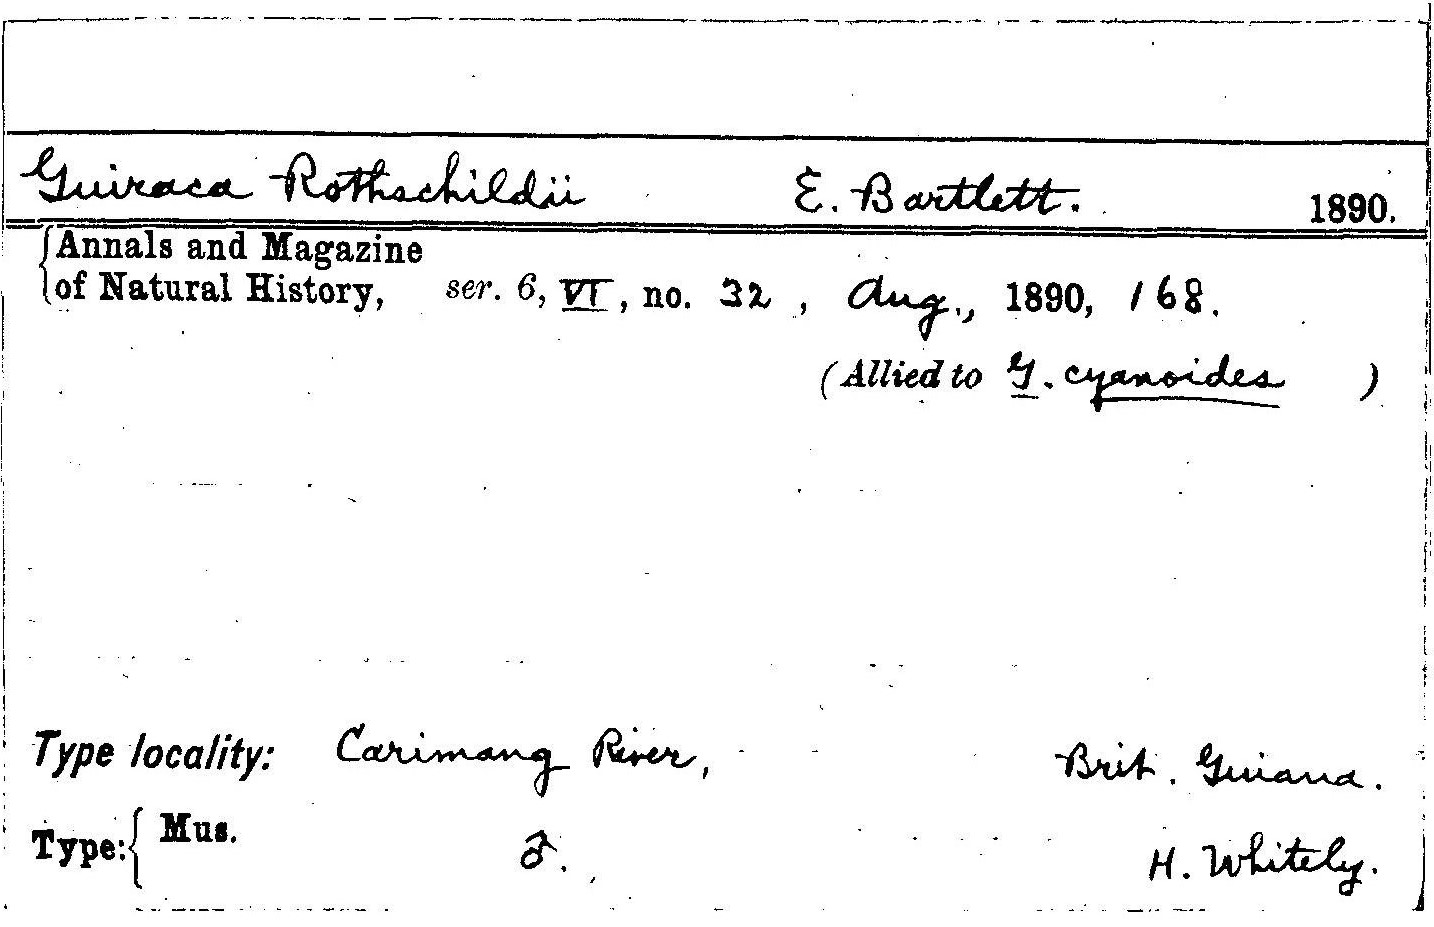 Guiraca Rothschildii E. Bartlett. 1890.
Annals and Magazine
of Natural History, ser. 6, VI, no. 32, Aug., 1890, 168.
(Allied to G. cyanoides )
Type locality: Carimang River, Brit. Guiana.
Type: Mus. ♂. H. Whitely.